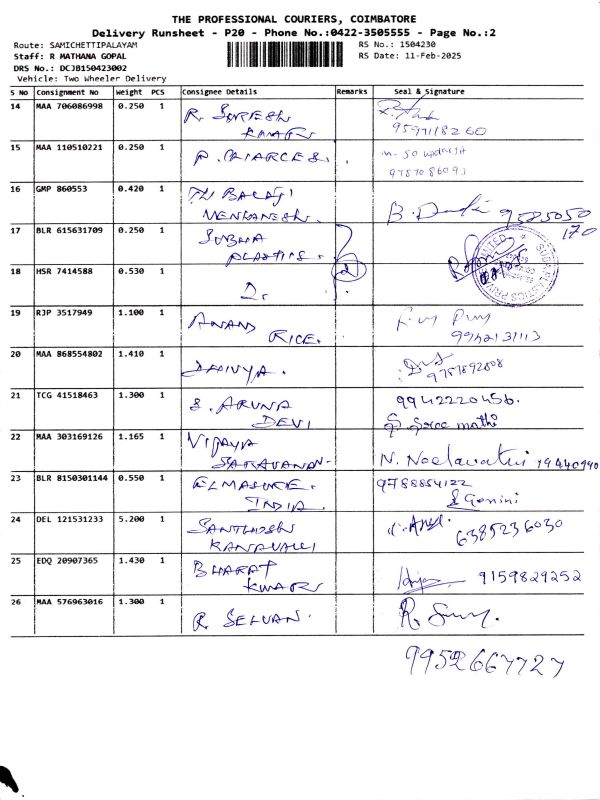 THE PROFESSIONAL COURIERS, COIMBATORE
Delivery Runsheet - P20 - Phone No.:0422-3505555 - Page No.:2
Route: SAMICHETTIPALAYAM RS No.: 1504230
Staff: R MATHANA GOPAL RS Date: 11-Feb-2025
DRS No.: DCJB150423002
Vehicle: Two Wheeler Delivery
S No Consignment No Weight PCS Consignee Details Remarks Seal & Signature
14 MAA 706086998 0.250 1 R. SURESH
KUMAR
15 MAA 110510221 0.250 1
16 GMP 860553 0.420 1 BALAJI
VENKANESH. 9585050
170
17 BLR 615631709 0.250 1 SUBHA
PLASTICS.
18 HSR 7414588 0.530 1 2
19 RJP 3517949 1.100 1 ANAND
RICE. 9942131113
20 MAA 868554802 1.410 1 DHIVYA. 9751892808
21 TCG 41518463 1.300 1 S. ARUNA 9942220456.
DEVI Sree mathi
22 MAA 303169126 1.165 1 VIJAYA
SARAVANAN- N. Neelavathi 79440940
23 BLR 8150301144 0.550 1 ELMASURE. 9788854122
INDIA. Gomini
24 DEL 121531233 5.200 1 SANTHOSH
KANAVALLI 6385236030
25 EDQ 20907365 1.430 1 BHARAT
KUMAR 9159829252
26 MAA 576963016 1.300 1 R. SELVAN.
9952667727